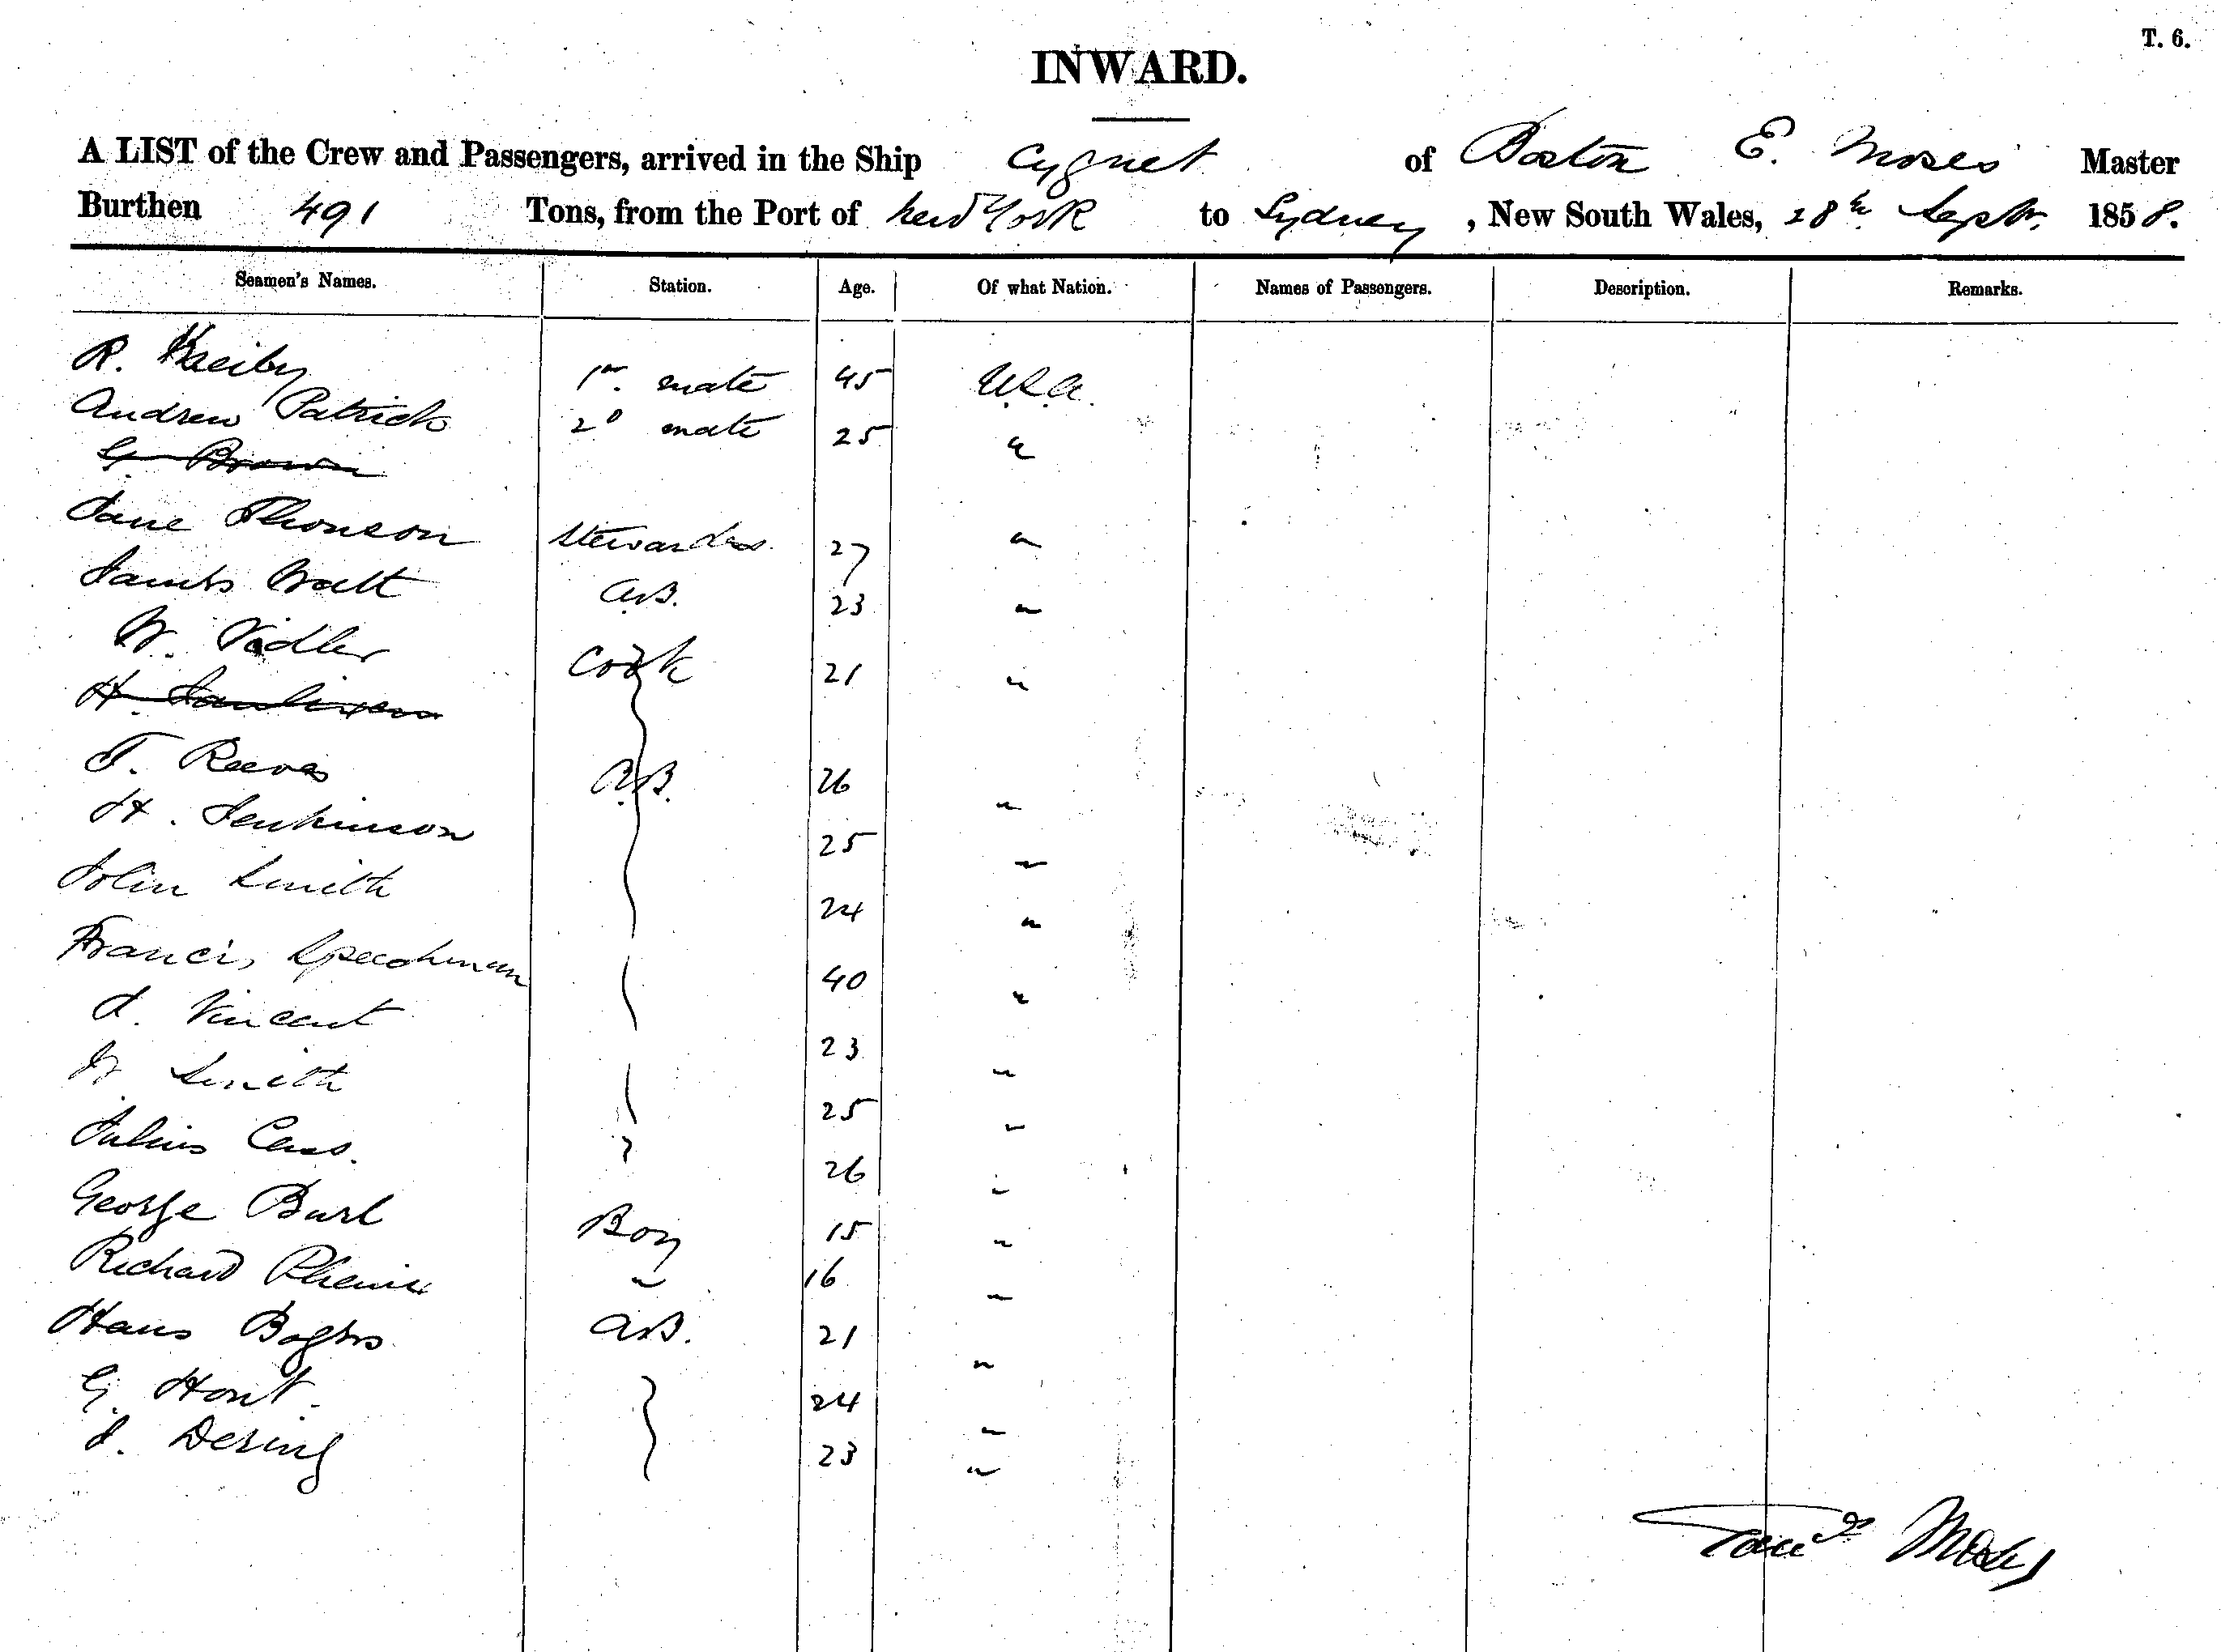 T. 6.
INWARD.
A LIST of the Crew and Passengers, arrived in the Ship Cygnet of Boston E. Moses Master
Burthen 491 Tons, from the Port of New York to Sydney, New South Wales, 28th Septr. 1858.
Seamen's Names. Station. Age. Of what Nation. Names of Passengers. Description. Remarks.
R. 1st. mate 45 U.S.A.
Andrew Patrick 2d mate 25 "
G. Brown
Jane Thonson Stewardess. 27 "
James Watt A.B. 23 "
W. Vidler Cook 21 "
H. Tomlinson
T. Reeves A.B. 26 "
H. Jenkinson 25 "
John Smith 24 "
Francis Speechman 40 "
J. Vincent 23 "
W. Smith 25 "
Julius 26 "
George Burl Boy 15 "
Richard Phenix " 16 "
Hans A.B. 21 "
G. Hont 24 "
J. Dering 23 "
Moses